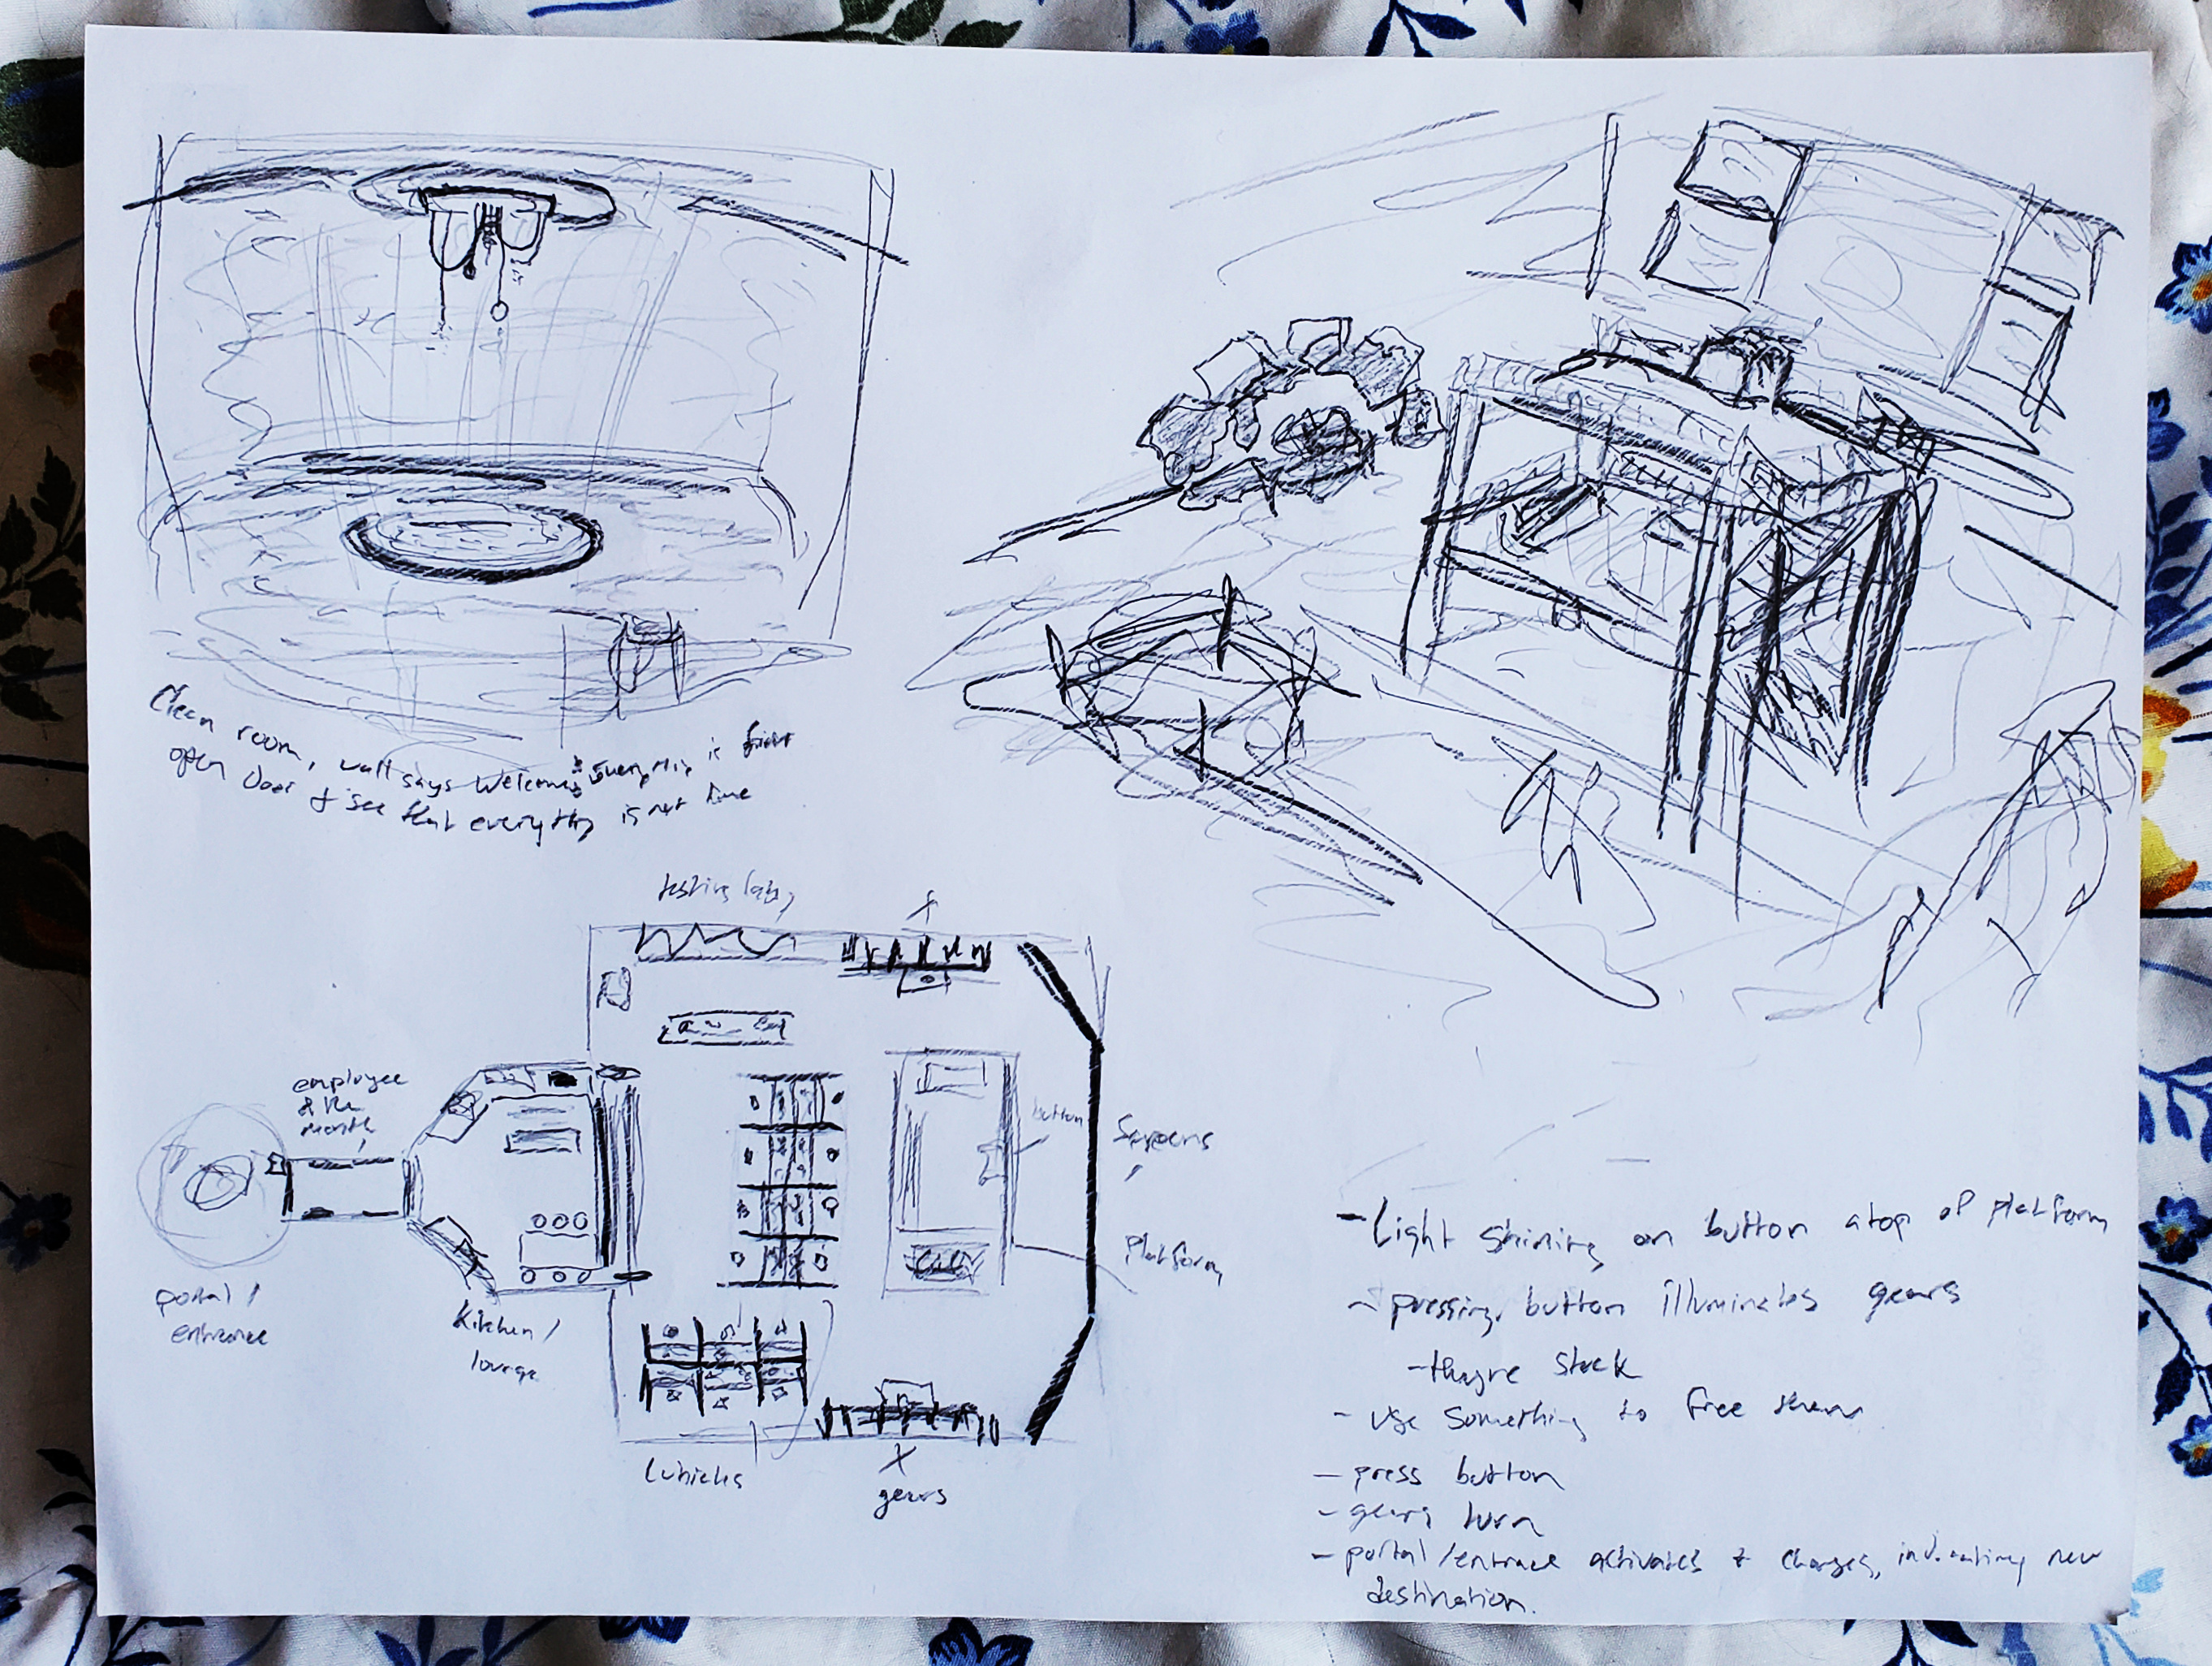 Clean room, wall says Welcome: Everything is fine
open door & see that everything is not fine
testing labs
X
employee
of the
month
button
Screens
portal /
entrance
Kitchen /
lounge
Platform
Cubicles
X
gears
- Light shining on button atop of platform
- pressing button illuminates gears
- theyre stuck
- use something to free them
- press button
- gears turn
- portal /entrace activates & changes, indicating new
destination.